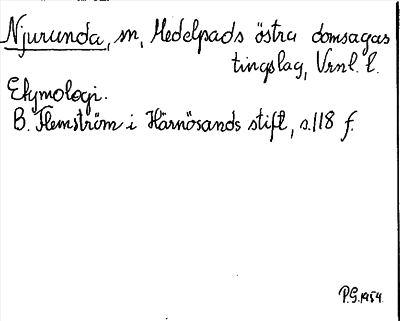 Njurunda, sn, Medelpads östra domsagas
tingslag, Vrnl. l.
Etymologi.
B. Flemström i Härnösands stift, s.118 f.
P.G.1954.